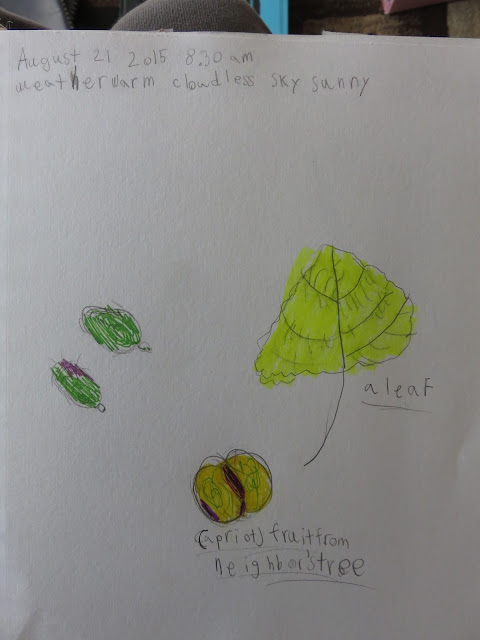 August 21 2015 8:30 am
weather warm cloudless sky sunny
a leaf
(apriot) fruit from
neighbor's tree